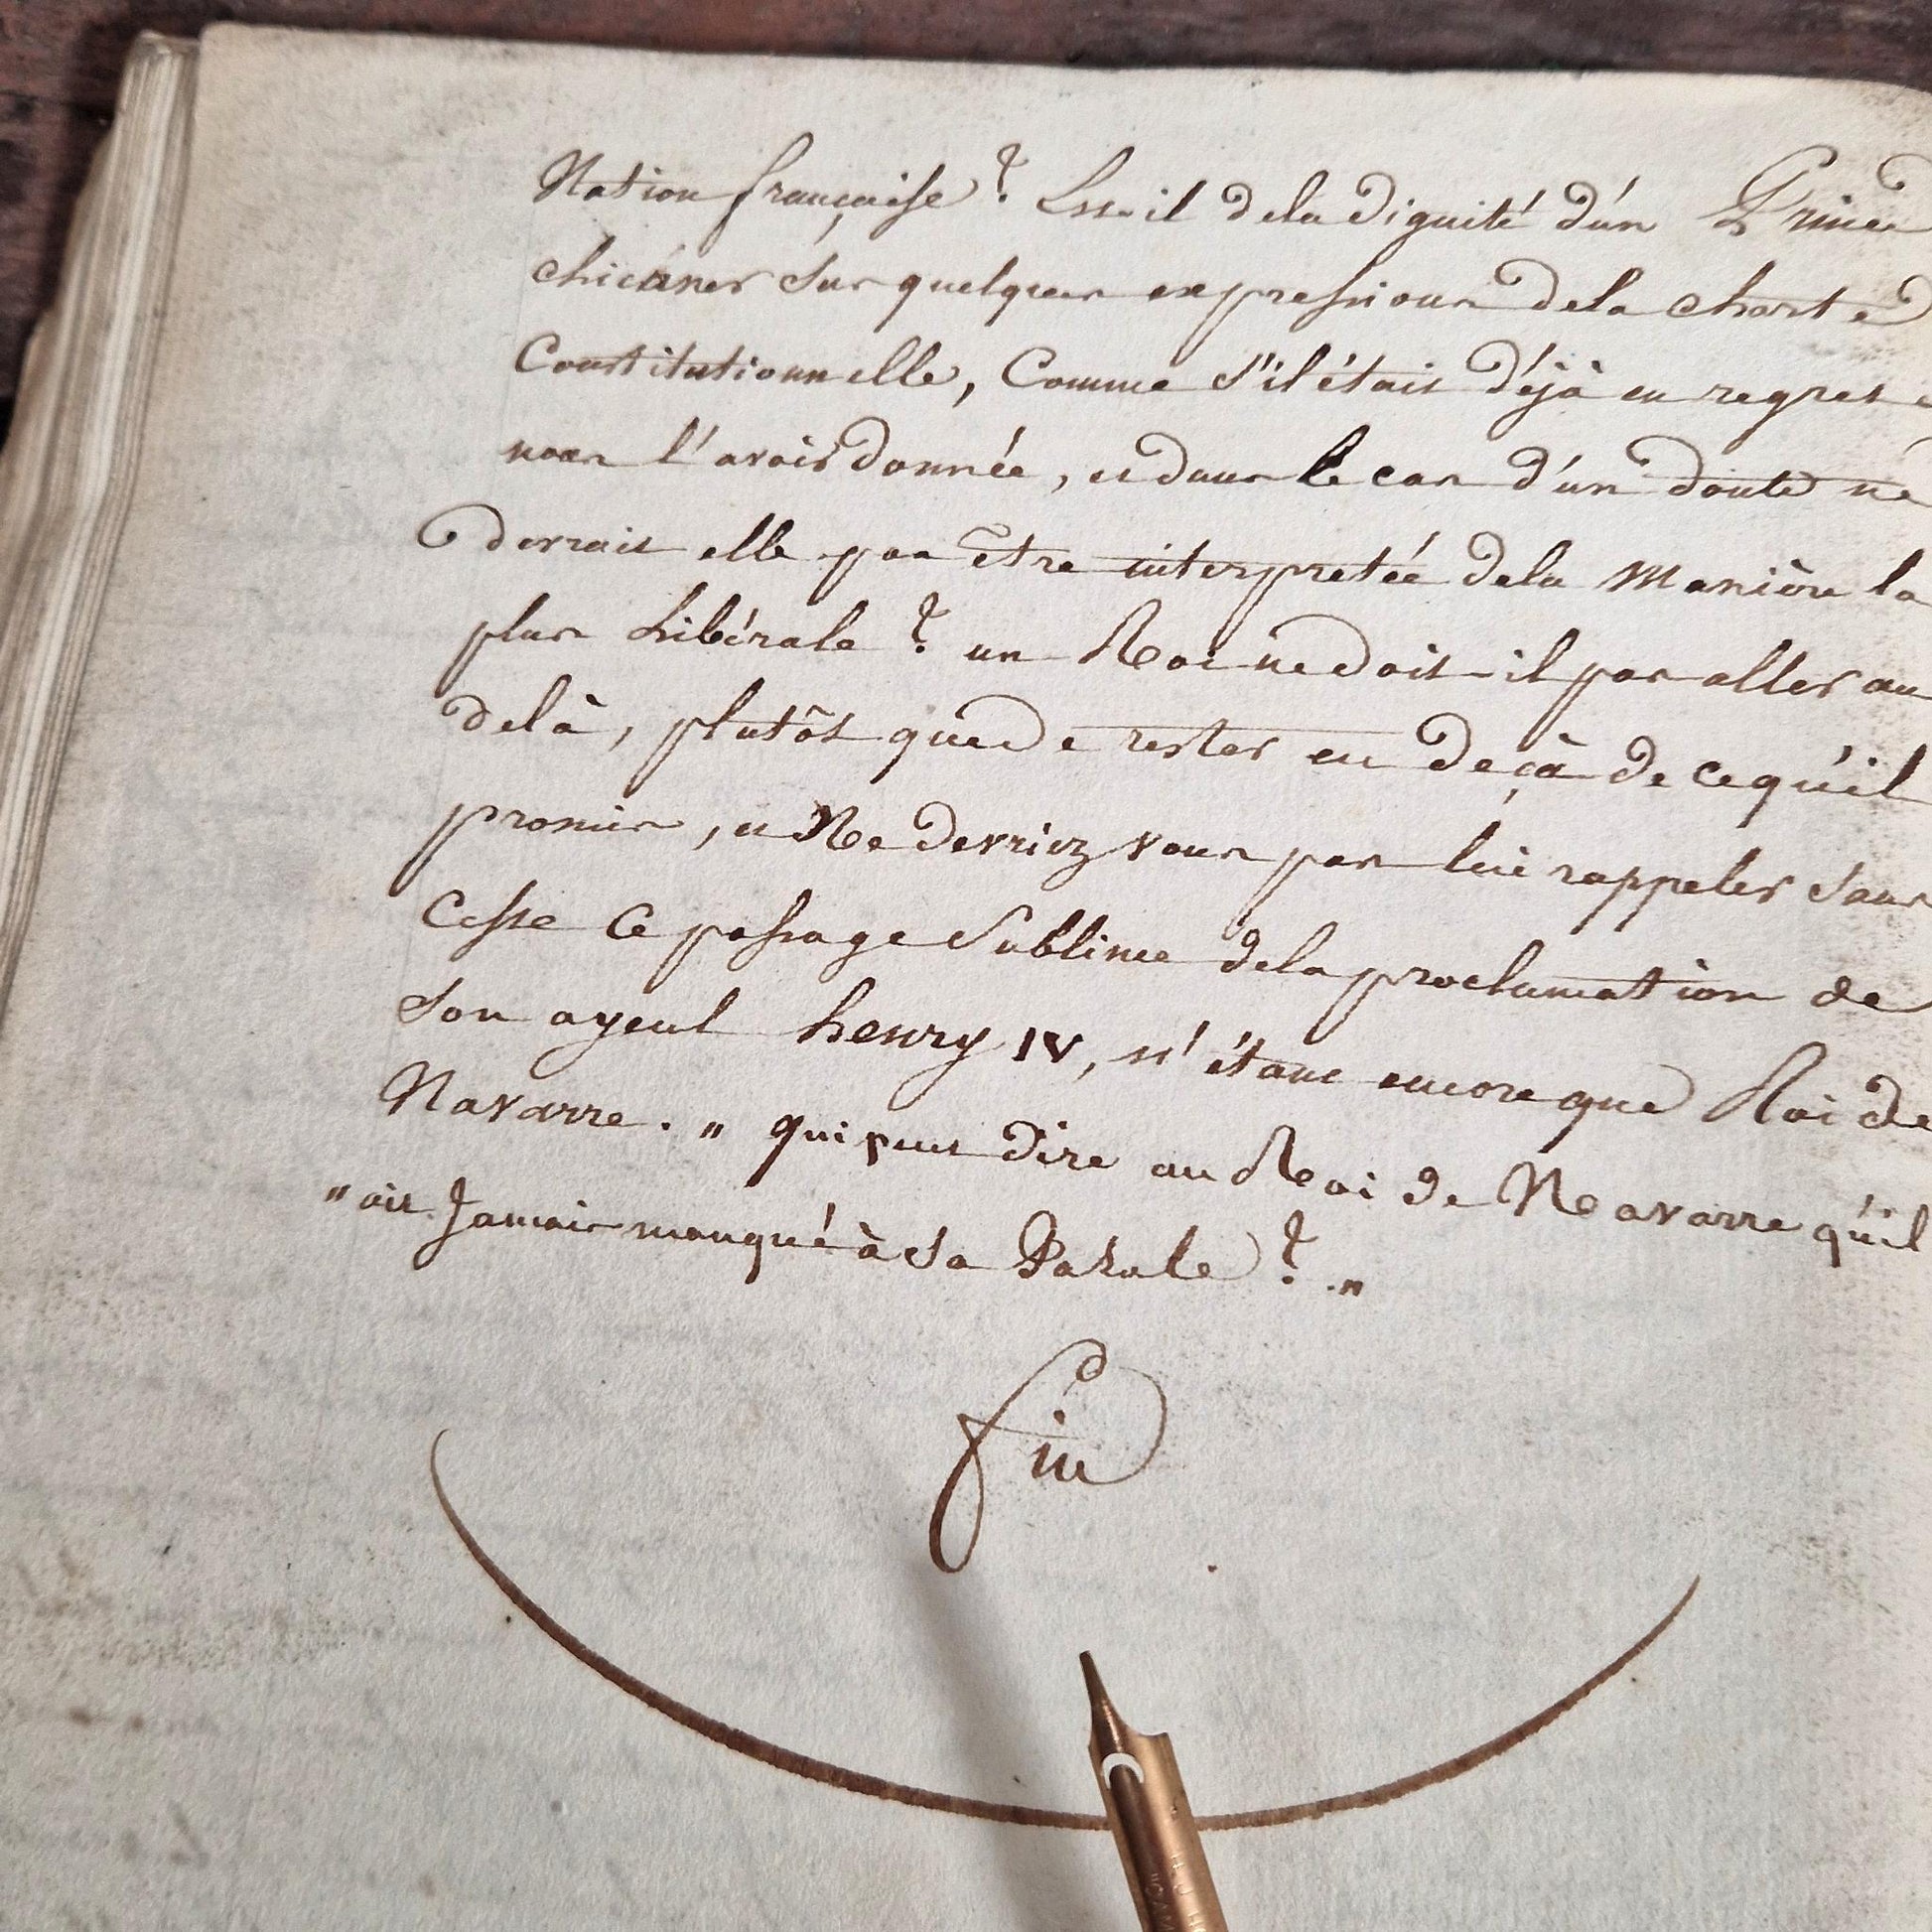 Nation française? Est-il de la dignité d'un Prince
chicaner sur quelques expressions de la charte
Constitutionnelle, Comme s'il était déjà en regret
nous l'avoir donnée, et dans le cas d'un doute ne
devrait elle pas être interpretée de la Manière la
plus libérale? un Roi ne doit-il pas aller au
delà, plutôt que de rester en deçà de ce qu'il
promis, et Ne devriez vous pas lui rappeler sans
Cesse ce passage Sublime de la proclamation de
Son ayeul henry IV, n'étant encore que Roi de
Navarre. " qui peut dire au Roi de Navarre qu'il
" ait Jamais manqué à sa Parole? "
fin